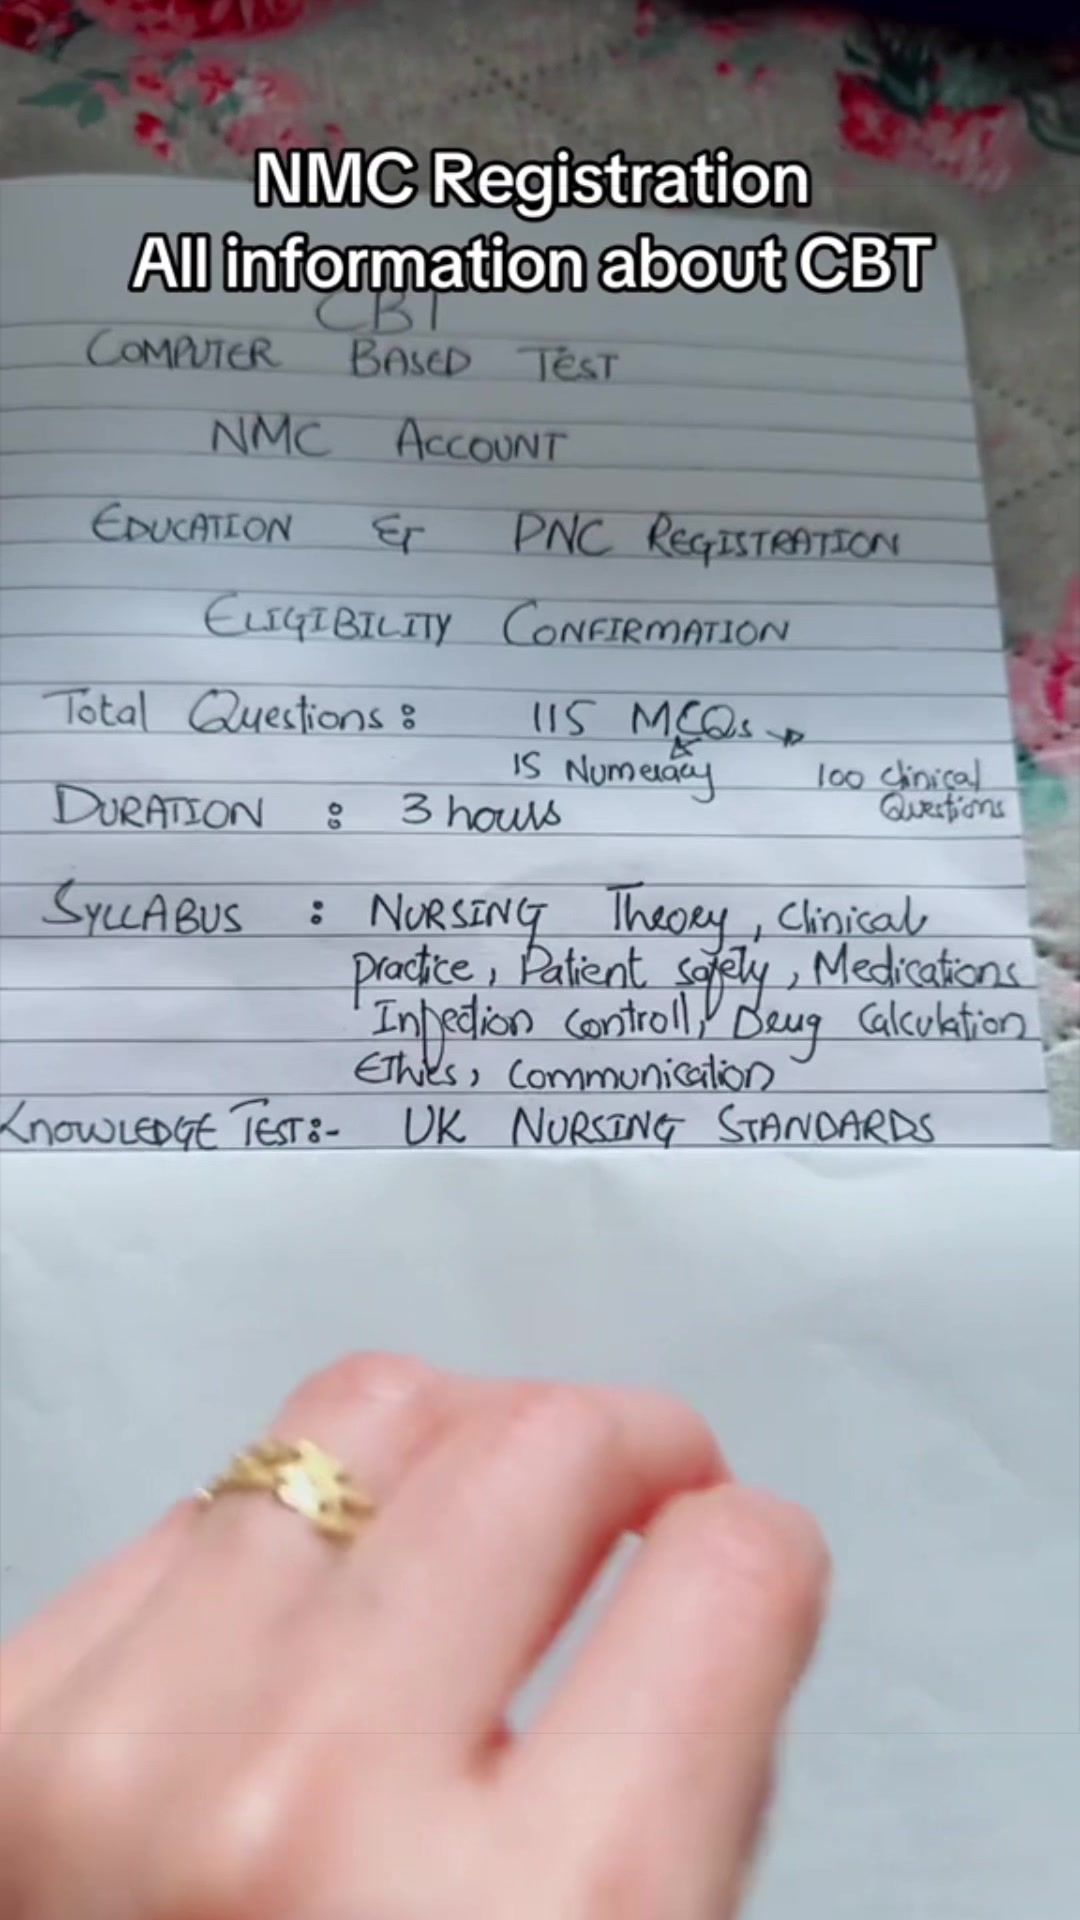 NMC Registration
All information about CBT
CBT
COMPUTER BASED TEST
NMC ACCOUNT
EDUCATION & PNC REGISTRATION
ELIGIBILITY CONFIRMATION
Total Questions : 115 MCQs →
15 Numeracy 100 clinical
Questions
DURATION : 3 hours
SYLLABUS : NURSING Theory, Clinical
practice, Patient safety, Medications
Infection controll, Drug Calculation
Ethics, Communication
KNOWLEDGE TEST:- UK NURSING STANDARDS